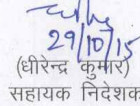 29/10/15
(धीरेन्द्र कुमार)
सहायक निदेशक